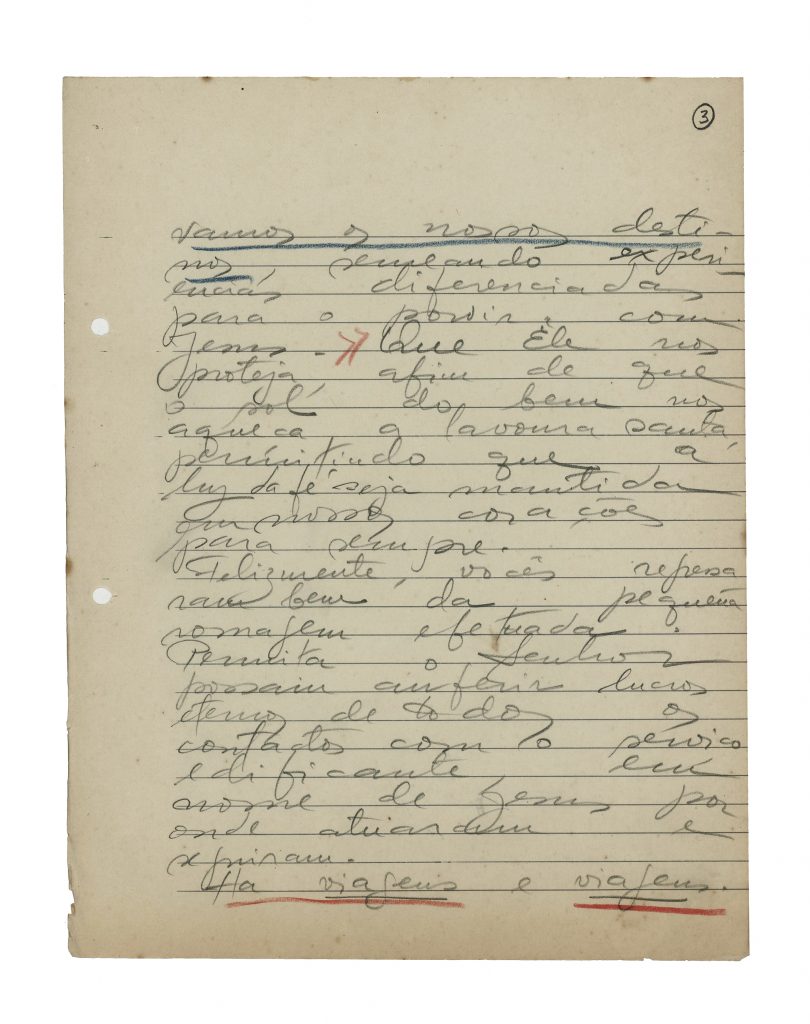 3
vamos os nossos desti-
nos semeando experi
encias diferenciadas
para o porvir. com
Jesus - Que Êle nos
proteja, afim de que
o sol do bem nos
aqueça a lavoura santa,
permitindo que a
luz da fé seja mantida
em nossos corações
para sempre.
Felizmente, vocês regressa
ram bem da pequena
romagem efetuada.
Permita o Senhor
possam auferir lucros
eternos de todos os
contactos com o serviço
edificante, em
nome de Jesus por
onde atuaram e
agiram.
Ha viagens e viagens.